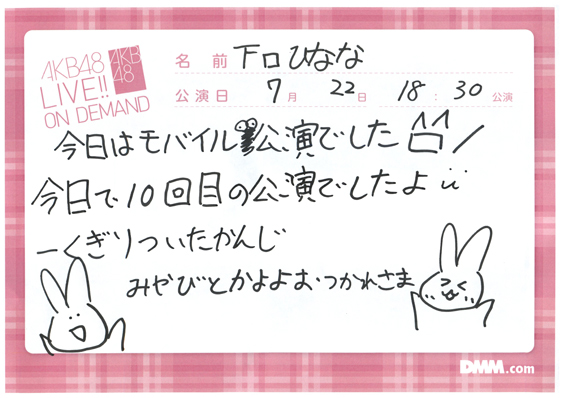 AKB48
LIVE!!
ON DEMAND
AKB
48
名前 下口ひなな
公演日 7月 22日 18:30 公演
今日はモバイル公演でした
今日で10回目の公演でしたよ
一くぎりついたかんじ
みやびとかよよおつかれさま
DMM.com